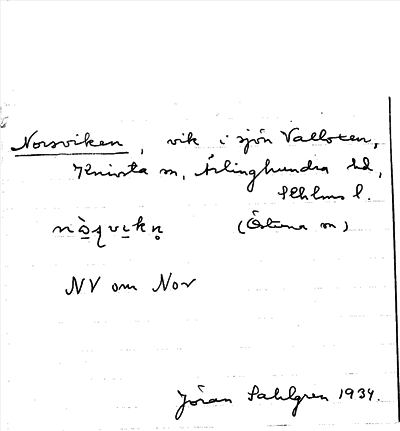 Norsviken, vik i sjön Valloxen,
Knivsta sn, Ärlinghundra hd,
Sthlms l.
(Östuna sn)
NV om Nor
Jöran Sahlgren 1934.